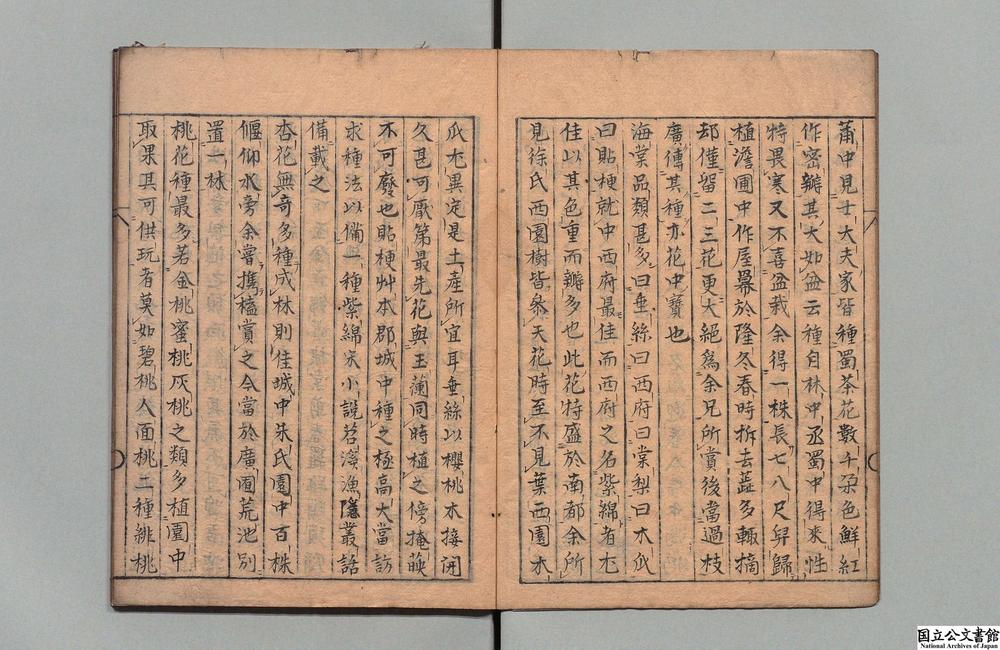 莆中見士大夫家皆種蜀茶花數千朶色鮮紅
作密瓣其大如盆云種自林中丞蜀中得來性
特畏寒又不喜盆栽余得一株長七八尺舁歸
植澹圃中作屋幕於隆冬春時拆去蕋多輒摘
却僅留二三花更大絕爲余兄所賞後當過枝
廣傳其種亦花中寶也
海棠品類甚多曰垂絲曰西府曰棠梨曰木瓜
曰貼梗就中西府最佳而西府之名紫綿者尤
佳以其色重而瓣多也此花特盛於南都余所
見徐氏西園樹皆參天花時至不見葉西園木
瓜尤異定是土產所宜耳垂絲以櫻桃木接開
久甚可厭第最先花與玉蘭同時植之傍掩映
不可廢也貼梗艸本郡城中種之極高大當訪
求種法以備一種紫綿宋小說苕溪漁隱叢話
備載之
杏花無奇多種成林則佳城中朱氏園中百株
偃仰水旁余嘗擕榼賞之今當於廣圃荒池別
置一林
桃花種最多若金桃蜜桃灰桃之類多植園中
取果其可供玩者莫如碧桃人面桃二種緋桃
国立公文書館
National Archives of Japan